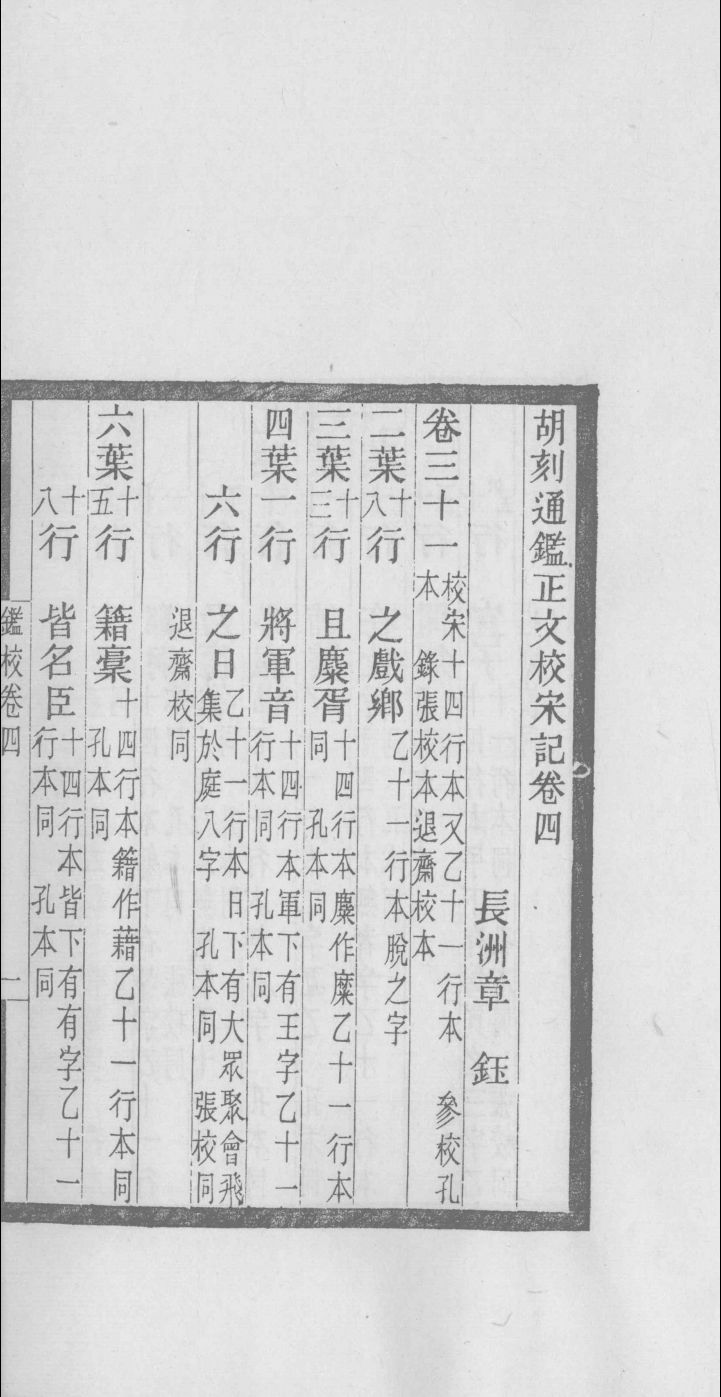 胡刻通鑑正文校宋記卷四
長洲章　鈺
卷三十一　校宋十四行本又乙十一行本　參校孔
本　錄張校本退齋校本
二葉十八行　之戲鄉　乙十一行本脫之字
三葉十三行　且麋胥　十四行本麋作糜乙十一行本
同　孔本同
四葉一行　將軍音　十四行本軍下有王字乙十一
行本同　孔本同
六行　之日　乙十一行本日下有大眾聚會飛
集於庭八字　孔本同　張校同
退齋校同
六葉十五行　籍稾　十四行本籍作藉乙十一行本同
孔本同
十八行　皆名臣　十四行本皆下有有字乙十一
行本同　孔本同
鑑校卷四　一